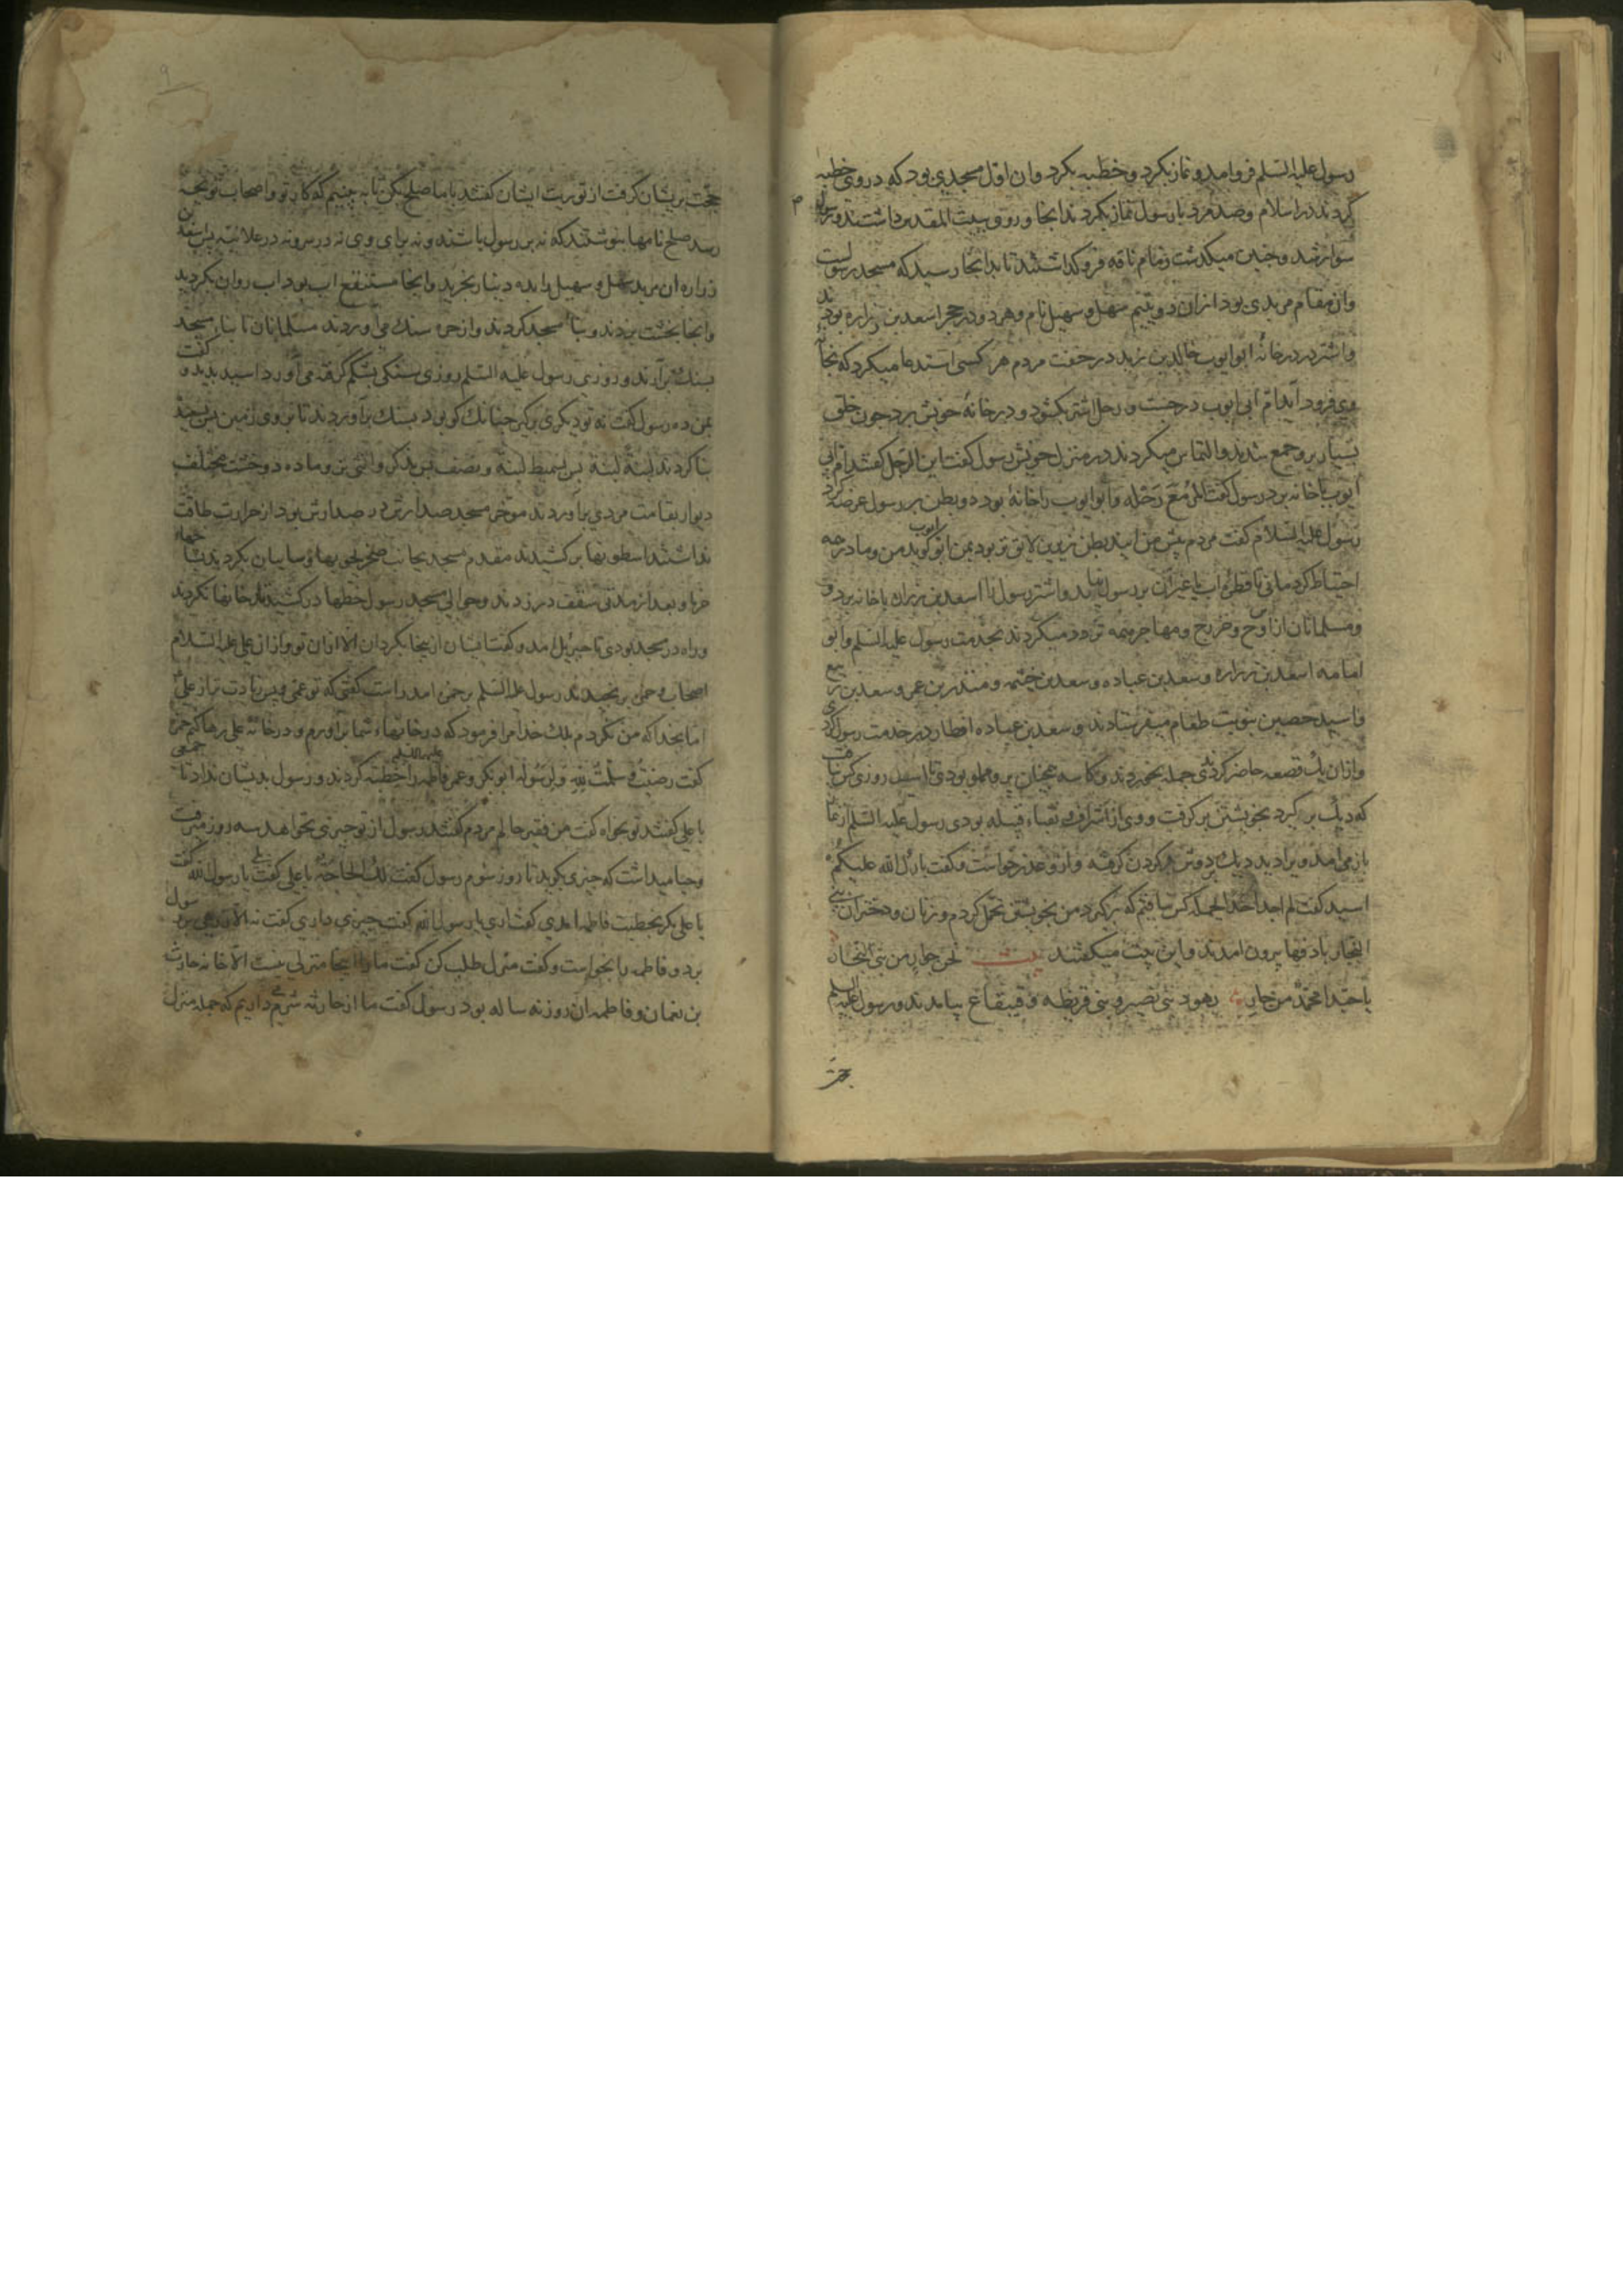 رسول علیه السلم فروامد و نماز بکرد و خطبه بکرد و ان اول مسجدی بود که در وی خطبه
کردند در اسلام و صد مرد با رسول نماز بکردند انجا و روی ببیت المقدس داشتند و رسول
سوار شد و همچنین میکذشت زمام ناقه فروکذاشتند تا بدانجا رسید که مسجد رسولست
وان مقام مربدی بود ازان دو یتیم سهل و سهیل نام و هر دو در حجر اسعد بن زراره بودند
واشتر در در خانه ابو ایوب خالد بن زید در خفت مردم هر کسی استدعا میکرد که بخانه
وی فرود اید ام ابی ایوب در جست و رحل اشتر بکشود و در خانه خویش برد چون خلق
بسیار برو جمع شدند و التماس میکردند در منزل خویش رسول کفت این الرحل کفتند ام ابی
ایوب با خانه برد رسول کفت المرء مع رحله و ابو ایوب را خانه بود دو بطن بر رسول عرضه کرد
رسول علیه السلام کفت مردم پیش من ایند بطن زیرین لایق تر بود بمن ابو ایوب کوید من و مادر چه
احتیاط کردمانی تا قطره اب یا غیر ان بر رسول نیاید و اشتر رسول را اسعد بن زراره با خانه برد و
ومسلمانان از اوس و خزرج و مهاجر همه تردد میکردند بخدمت رسول علیه السلم و ابو
امامه اسعد بن زراره و سعد بن عباده و سعد بن خثیمه و منذر بن عمرو و سعد بن ربیع
واسید حصین بنوبت طعام میفرستادند و سعد بن عباده افطار در خدمت رسول کردی
وازان یک قصعه حاضر کردندی جمله بخوردند و کاسه همچنان پر و مملو بودی تا اسید روزی کس نیافت
که دیک بر کیرد بخویشتن بر کرفت و وی از اشراف نقباء قبیله بودی رسول علیه السلم از نماز
باز می امد ویرا دید دیک بر دوش و کردن کرفته و ازو عذر خواست و کفت بارک الله علیکم
اسید کفت لم اجد احدا یحمله کس نیافتم که بر کیرد من بخویشتن تحمل کردم و زنان و دختران بنی
النجار با دفها بیرون امدند و این بیت میکفتند بیت نحن جوار من بنی النجار
یا حبذا محمد من جار یهود بنی نضیر و بنی قریظه و قینقاع بیامدند و رسول علیه السلم
حجت
حجت بریشان کرفت از توریت ایشان کفتند با ما صلح بکن تا به بینیم که کار تو و اصحاب تو بچه
رسد صلح نامها بنوشتند که نه بر رسول باشند و نه برای وی نه در سر و نه در علانیه پس اسعد بن
زراره ان مربد سهل و سهیل را بده دینار بخرید و انجا مستنقع اب بود اب روان بکردند
وانجا بخشت بزدند و بناء مسجد کردند و از حره سنک می اوردند مسلمانان تا بناء مسجد
بسنک برارند و روزی رسول علیه السلم روزی سنکی بشکم کرفته می اورد اسید بدید و کفت
بمن ده رسول کفت نه تو دیکری بر کیر چنانک کو بود بسنک براوردند تا بر وی زمین پس مسجد
بنا کردند لبنة لبنة پس بسمیط لبنة و نصف پس بذکر و انثی نر و ماده دو خشت مختلف
دیوار بقامت مردی براوردند موخر مسجد صد ارش در صد ارش بود از حرارت طاقت
نداشتند اسطونها بر کشیدند مقدم مسجد بجانب صحن بچوبها و سایبان بکردند بشاخهاء
خرما و بعد از مدتی سقف در زدند و حوالی مسجد رسول خطها در کشیدند تا خانها بکردند
وراه در مسجد بودی تا جبریل امد و کفت ایشان ازینجا بکردان الا از ان تو و از ان علی علیه السلام
اصحاب و حمزه برنجیدند رسول علیه السلم بر حمزه امد راست کفتی که تو عمی و پس زیادت تر از علی
اما بخدا که من نکردم بلک خدا مرا فرمود که در خانهاء شما براورم و در خانه علی رها کنم حمزه
کفت رضیت و سلمت لله و لرسوله ابو بکر و عمر فاطمه را علیها السلم خطبه کردند و رسول بدیشان نداد تا جمعی
با علی کفتند تو بخواه کفت من فقیر حالم مردم کفتند رسول از تو چیزی نخواهد سه روز میرفت
وحیا میداشت که چیزی بکوید تا روز سوم رسول کفت لک الحاجة یا علی کفت بلی یا رسول الله کفت
یا علی مکر بخطبت فاطمه امدی کفت اری یا رسول الله کفت چیزی داری کفت نه الا درعی رسول
برد و فاطمه را بخواست و کفت منزل طلب کن کفت ما را اینجا منزلی نیست الا خانه حارث
بن نعمان و فاطمه ان روز نه ساله بود رسول کفت ما از حارثه شرم داریم که جمله منزل